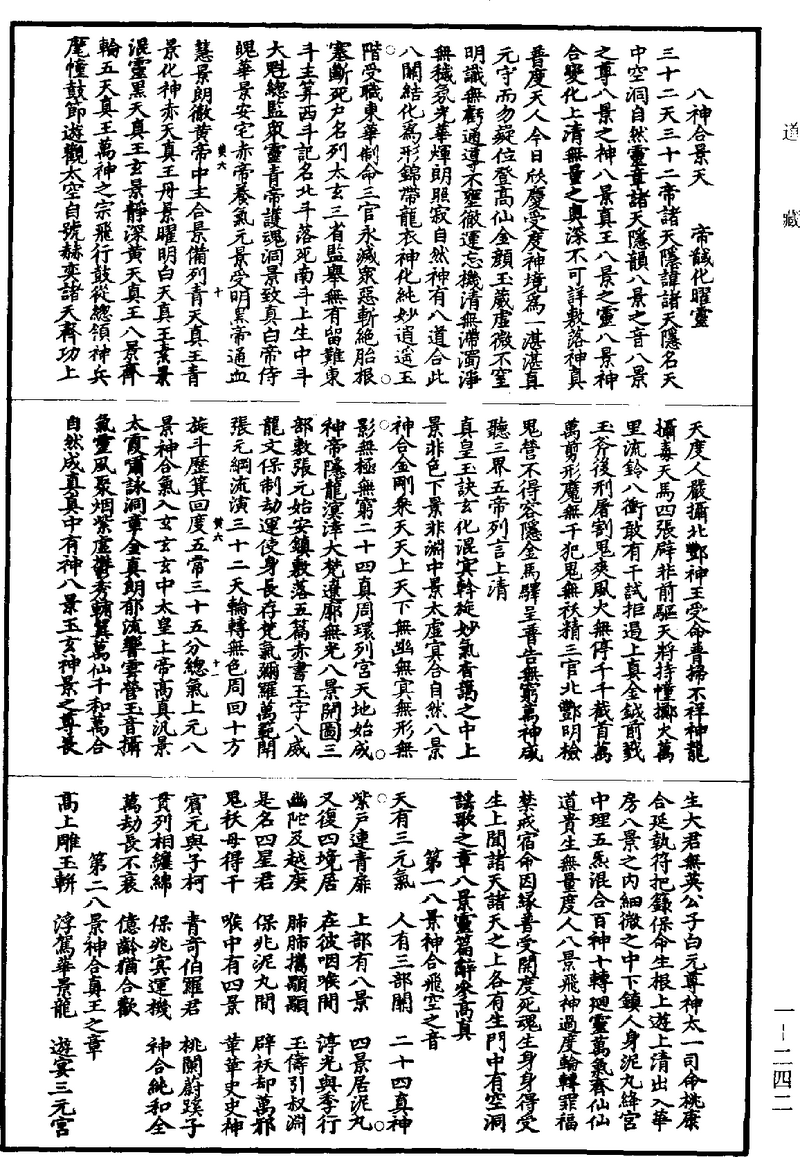 道藏
八神合景天　帝誠化曜靈
三十二天三十二帝諸天隱諱諸天隱名天
中空洞自然靈章諸天隱韻八景之音八景
之尊八景之神八景真王八景之靈八景神
合變化上清無量之奧深不可詳敷落神真
普度天人今日欣慶受度神境為一湛湛真
元守而勿凝位登高仙金顏玉葳虛微不窒
明識無虧通導不壅徹運忘機清無滯濁淨
無穢氛光華煇朗照寂自然神有八道合此
八關結化為形錦帶龍衣神化純妙逍遙玉
階受職東華制命三官永滅眾惡斬絕胎根
塞斷死戶名列太玄三省監舉無有留難東
斗主筭西斗記名北斗落死南斗上生中斗
大魁總監眾靈青帝護魂洞景致真白帝侍
魄華景安宅赤帝養氣元景受明黑帝通血
慧景朗徹黃帝中主合景備列青天真王青
景化神赤天真王丹景曜明白天真王素景
混靈黑天真王玄景靜深黃天真王八景齊
輪五天真王萬神之宗飛行鼓從總領神兵
麾幢鼓節遊觀太空自號赫奕諸天齊功上
天度人嚴攝北酆神王受命普掃不祥神龍
攝毒天馬四張辟非前驅天將持幢擲火萬
里流鈴八衝敢有干試拒遏上真金鉞前戮
玉斧後刑屠割鬼爽風火無停千千截首萬
萬剪形魔無干犯鬼無袄精三官北酆明檢
鬼營不得容隱金馬驛呈普告無窮萬神咸
聽三界五帝列言上清
真皇玉訣玄化混寘斡旋妙氣杳藹之中上
景非色下景非淵中景太虛寘合自然八景
神合金剛眾天天上天下無幽無寘無形無
影無極無窮二十四真周環列宮天地始成
神帝隱龍溟涬大梵遼廓無光八景開圖三
部敷張元始安鎮敷落五篇赤書玉字八威
龍文保制劫運使身長存梵氣彌羅萬範開
張元綱流演三十二天輪轉無色周回十方
旋斗歷箕回度五常三十五分總氣上元八
景神合氣入玄玄玄中太皇上帝高真汎景
太霞嘯詠洞章金真朗郁流響雲營玉音攝
氣靈風聚烟紫虛鬱秀輔翼萬仙千和萬合
自然成真真中有神八景玉玄神景之尊長
生大君無英公子白元尊神太一司命桃康
合延執符把籙保命生根上遊上清出入華
房八景之內細微之中下鎮人身泥丸絳宮
中理五炁混合百神十轉廻靈萬氣齊仙仙
道貴生無量度人八景飛神過度輪轉罪福
禁戒宿命因緣普受開度死魂生身身得受
生上聞諸天諸天之上各有生門中有空洞
謠歌之章八景靈篇辭參高真
第一八景神合飛空之音
天有三元氣　人有三部關　二十四真神
紫戶連青扉　上部有八景　四景居泥丸
又復四境居　在彼咽喉間　渟光與季行
幽陀及越庚　肺肺攜顯顯　王儔引叔淵
是名四星君　保兆泥丸間　辟袄却萬邪
鬼袄母得干　喉中有四景　華華史史神
賓元與子柯　青奇伯羅君　桃闌蔚蹊子
貫列相纏綿　保兆寘運機　神合純和全
萬劫長不衰　億齡猶合歡
第二八景神合真王之章
高上雕玉軿　浮駕華景龍　遊宴三元宮
黃六　十
黃六　十一
一—二四二